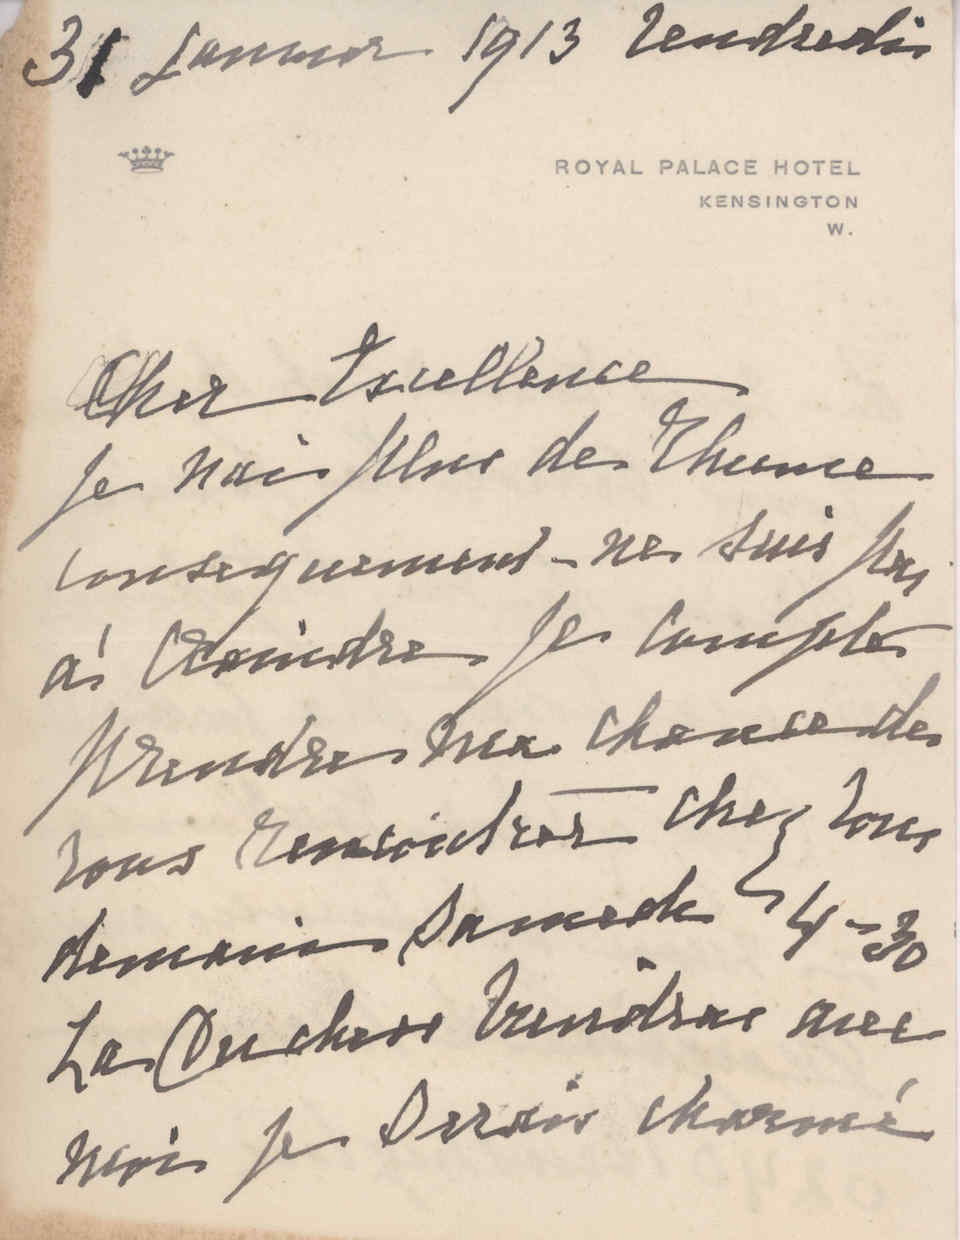 31 Janvier 1913 Vendredi
ROYAL PALACE HOTEL
KENSINGTON
W.
Cher Excellence
Je nai plus de Rhume
consequement - ne suis pas
à craindre Je compte
prendre ma chance de
vous rencontrer chez vous
demain Samedi 4-30
La Duchess viendrai avec
moi je serais charmé